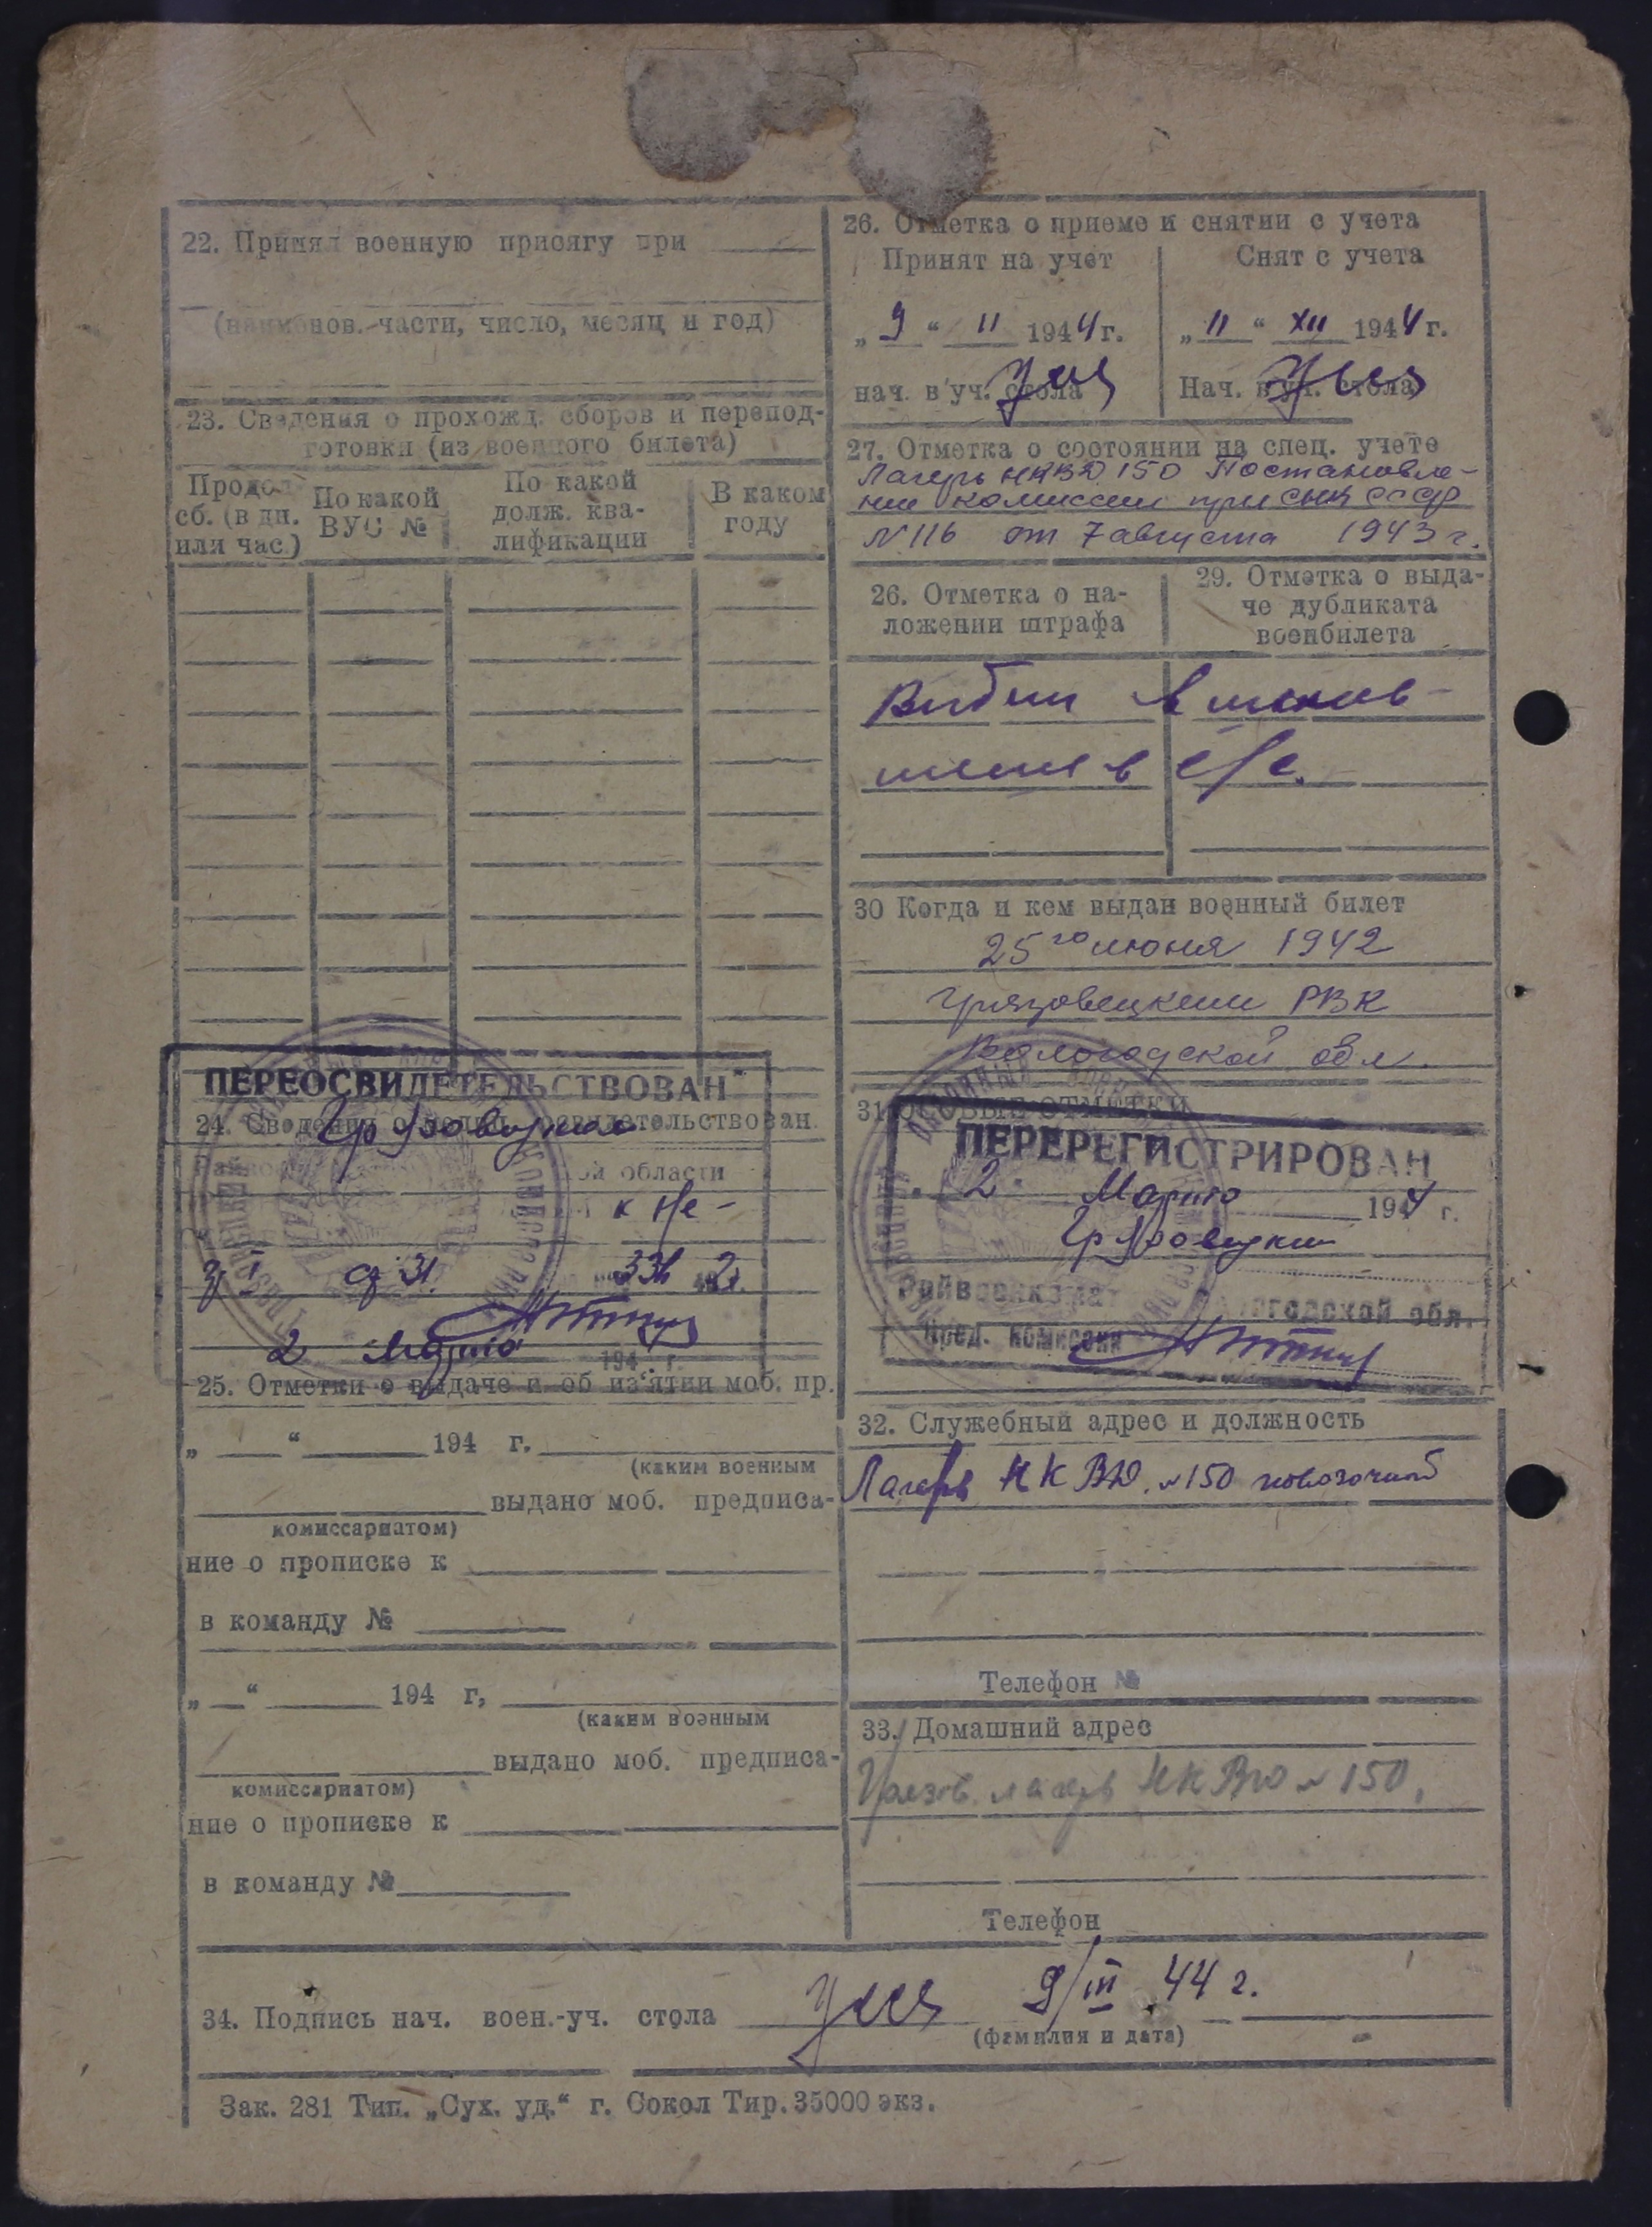 22. Принял военную присягу при
(наименов. части, число, месяц и год)
23. Сведения о прохожд. сборов и перепод-
готовки (из военного билета)
Продол.
сб. (в дн.
или час.)
По какой
ВУС №
По какой
долж. ква-
лификации
В каком
году
ПЕРЕОСВИДЕТЕЛЬСТВОВАН
24. Сведения о свидетельствован
Грязовецким
ой области
к не-
гр I ст 31. 336 42.
2 Марта 194 г.
25. Отметки о выдаче и об из'ятии моб. пр.
„ “ 194 г.
(каким военным
выдано моб. предписа-
комиссариатом)
ние о прописке к
в команду №
„ “ 194 г,
(каким военным
выдано моб. предписа-
комиссариатом)
ние о прописке к
в команду №
26. Отметка о приеме и снятии с учета
Принят на учет
„9“ II 1944 г.
нач. в уч. стола
Снят с учета
„11“ XII 1944 г.
Нач. в уч. стола
27. Отметка о состоянии на спец. учете
Лагерь НКВД 150 Постановле-
ние комиссии при СНК СССР
№ 116 от 7 августа 1943 г.
26. Отметка о на-
ложении штрафа
29. Отметка о выда-
че дубликата
военбилета
Выбыл в
в
30 Когда и кем выдан военный билет
25го июня 1942
Грязовецким РВК
Вологодской обл.
31. ОСОБЫЕ ОТМЕТКИ
ПЕРЕРЕГИСТРИРОВАН
„2“ Марта 1944 г.
Грязовецким
Райвоенкомат Вологодской обл.
Пред. комиссии
32. Служебный адрес и должность
Лагерь НКВД. №150
Телефон №
33. Домашний адрес
Грязов. лагерь НКВД №150.
Телефон
34. Подпись нач. воен.-уч. стола 9/III 44 г.
(фамилия и дата)
Зак. 281 Тип. „Сух. уд.“ г. Сокол Тир. 35000 экз.